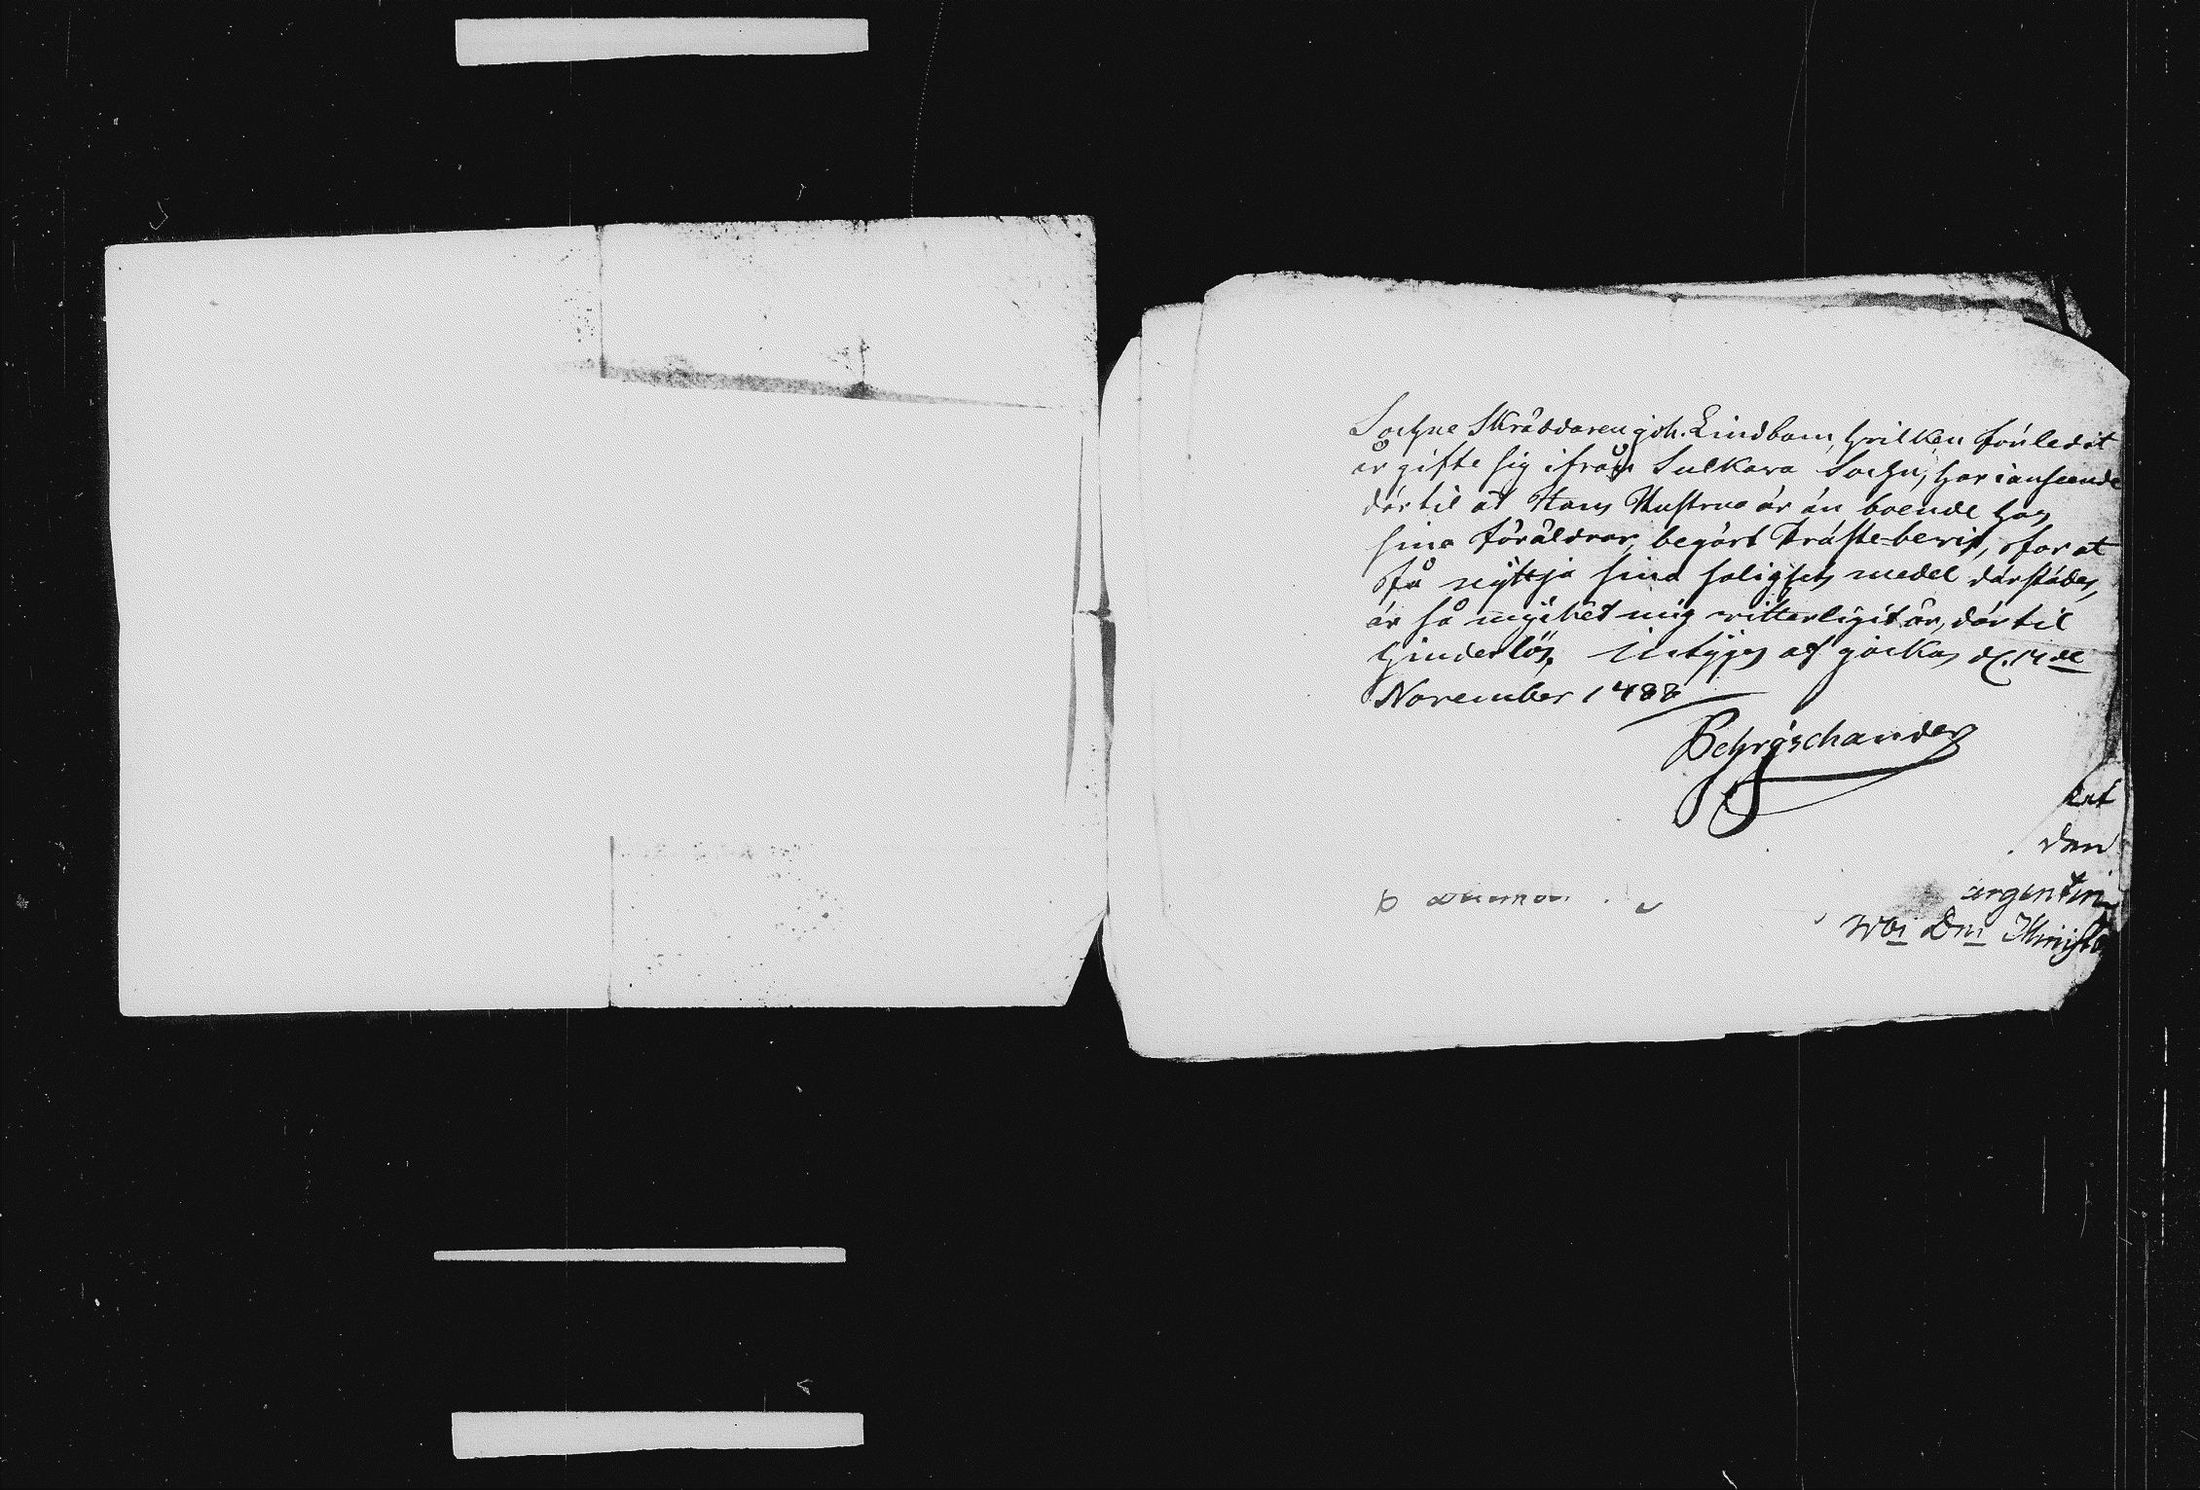 Sochne Skräddaren Joh. Lindbom, hvilken förledit
år gifte sig ifrån Sulkava Sochn, har i anseende
därtil at Hans Hustru är än boende hos
sina föräldrar, begärt Präste-bevis, för at
få nyttja sina salighets medel därstädes,
är så myiket mig vitterligit är, därtil
hinderlös, intygas af Jockas d. 14 de
November 1788
Pehr Öschander
ert
den
argentin
Wbi Dni Minist